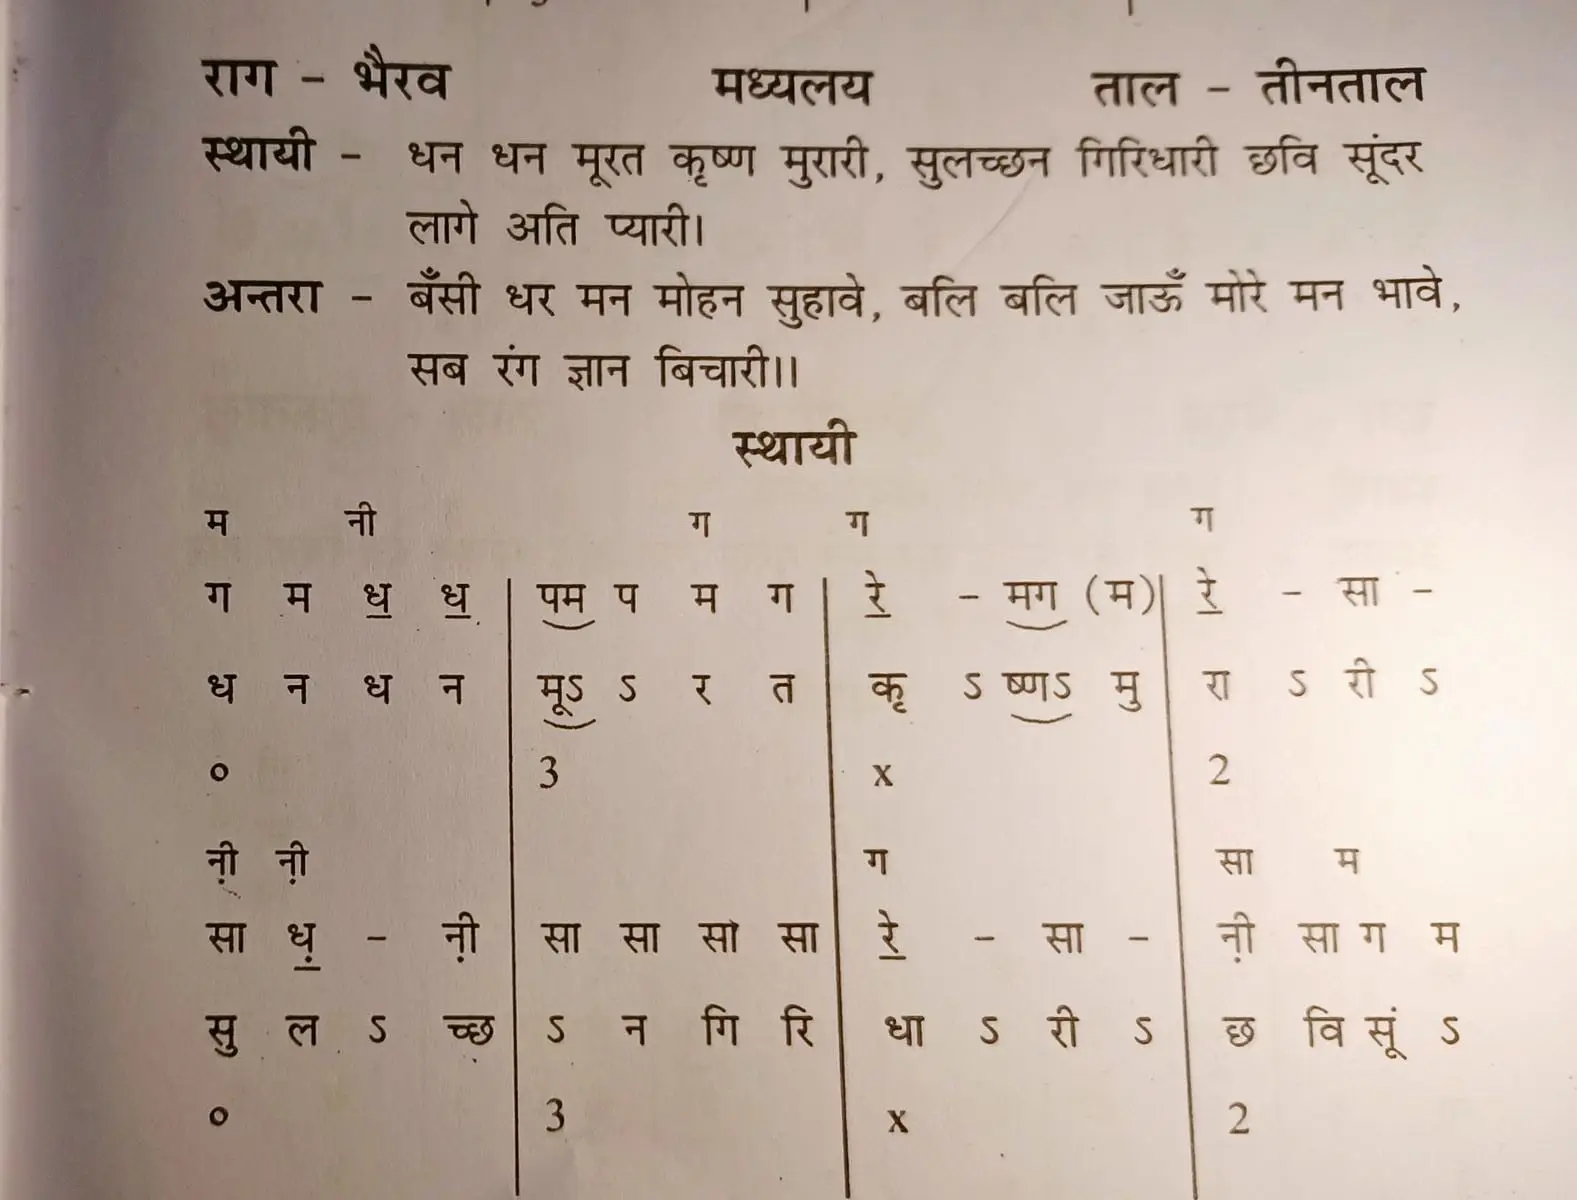 राग - भैरव मध्यलय ताल - तीनताल
स्थायी - धन धन मूरत कृष्ण मुरारी, सुलच्छन गिरिधारी छवि सूंदर
लागे अति प्यारी।
अन्तरा - बँसी धर मन मोहन सुहावे, बलि बलि जाऊँ मोरे मन भावे,
सब रंग ज्ञान बिचारी।।
स्थायी
म नी ग ग ग
ग म ध॒ ध॒ | पम प म ग | रे॒ - मग (म) | रे॒ - सा -
ध न ध न | मूऽ ऽ र त | कृ ऽ ष्णऽ मु | रा ऽ री ऽ
० 3 x 2
ऩी ऩी ग सा म
सा ध़॒ - ऩी | सा सा सा सा | रे॒ - सा - | ऩी सा ग म
सु ल ऽ च्छ | ऽ न गि रि | धा ऽ री ऽ | छ वि सूं ऽ
० 3 x 2